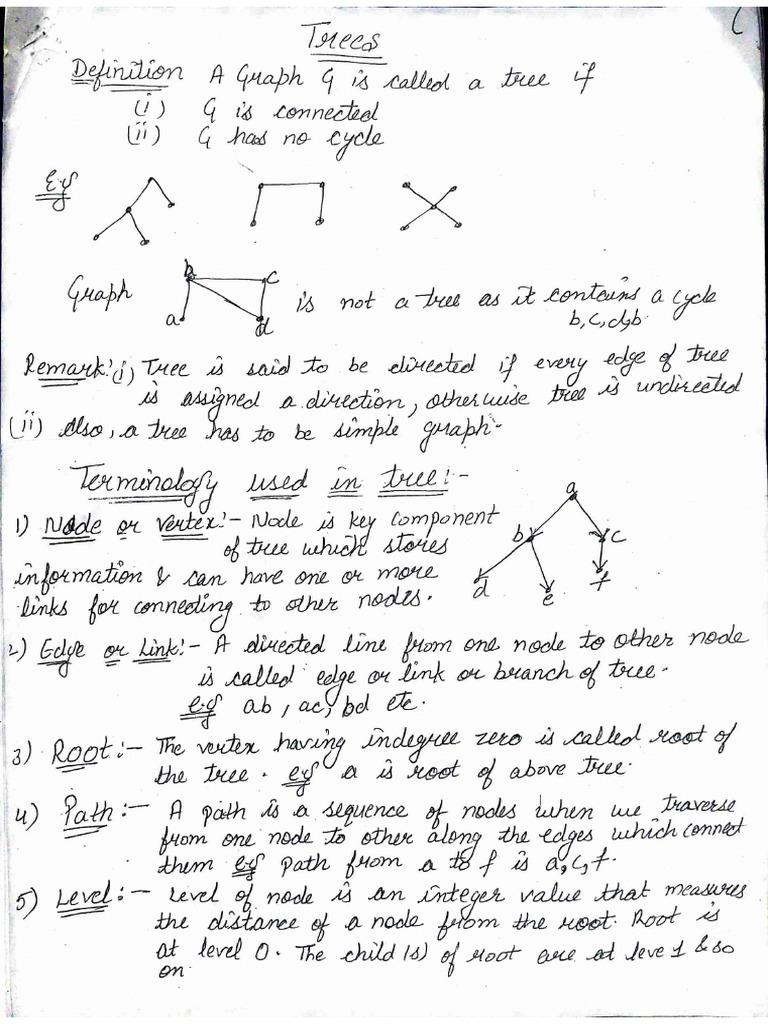 Trees
Definition A Graph G is called a tree if
(i) G is connected
(ii) G has no cycle
E.g
Graph
b
c
a
d
is not a tree as it contains a cycle
b, c, d, b
Remark: (i) Tree is said to be directed if every edge of tree
is assigned a direction, otherwise tree is undirected
(ii) Also, a tree has to be simple graph.
Terminology used in tree:-
1) Node or vertex:- Node is key component
of tree which stores
information & can have one or more
links for connecting to other nodes.
a
b
c
d
e
f
2) Edge or Link:- A directed line from one node to other node
is called edge or link or branch of tree.
e.g ab, ac, bd etc.
3) Root:- The vertex having indegree zero is called root of
the tree. e.g a is root of above tree.
4) Path:- A path is a sequence of nodes when we traverse
from one node to other along the edges which connect
them e.g path from a to f is a, c, f.
5) Level:- Level of node is an integer value that measures
the distance of a node from the root. Root is
at level 0. The child(s) of root are at leve 1 & so
on